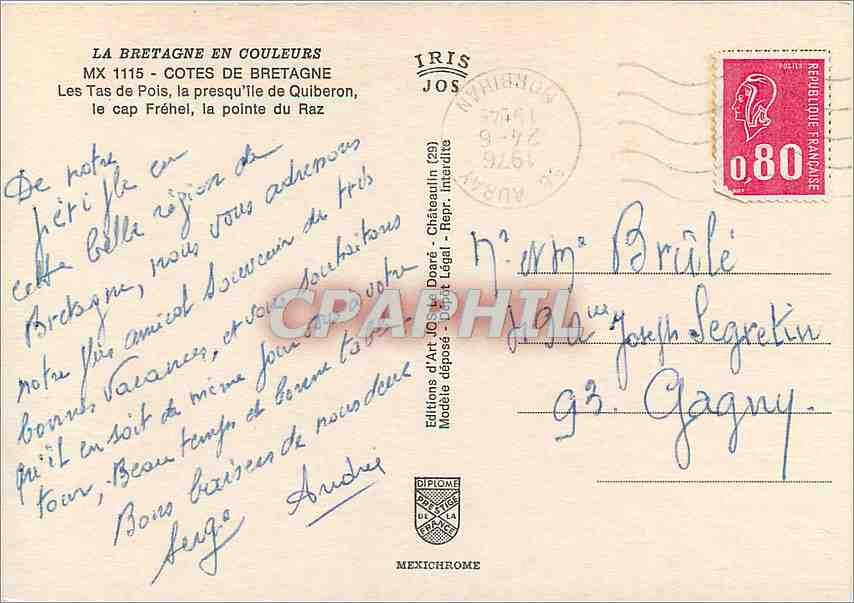 LA BRETAGNE EN COULEURS
MX 1115 - COTES DE BRETAGNE
Les Tas de Pois, la presqu'île de Quiberon,
le cap Fréhel, la pointe du Raz
IRIS
JOS
MORBIHAN
24-6
1976
AURAY
POSTES
REPUBLIQUE FRANÇAISE
0,80
De notre
périple en
cette belle région de
Bretagne, nous vous adressons
notre plus amical souvenir de très
bonnes vacances, et vous souhaitons
qu'il en soit de même pour vous à votre
tour, Beau temps et bonne table
Bons baisers de nous deux
Serge André
CPARHIL
Editions d'Art JOS Le Doaré - Châteaulin (29)
Modèle déposé - Dépôt Légal - Repr. Interdite
Mr et Me Brûlé
Joseph Segretin
93. Gagny.
DIPLOME
PRESTIGE
DE LA
FRANCE
MEXICHROME